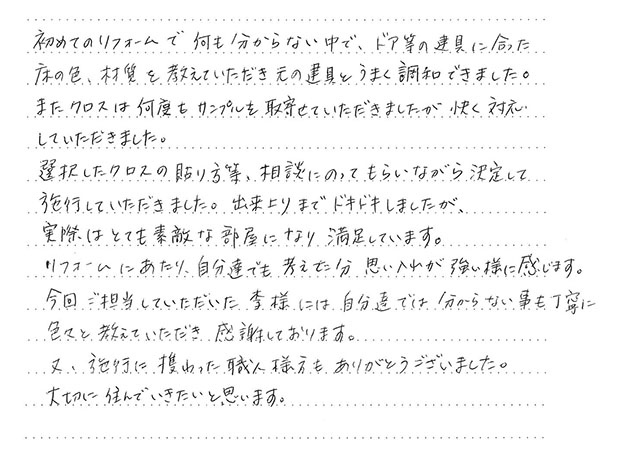 初めてのリフォームで何も分からない中で、ドア等の建具に合った
床の色、材質を教えていただき元の建具とうまく調和できました。
またクロスは何度もサンプルを取寄せていただきましたが快く対応
していただきました。
選択したクロスの貼り方等、相談にのってもらいながら決定して
施行していただきました。出来上りまでドキドキしましたが、
実際はとても素敵な部屋になり満足しています。
リフォームにあたり、自分達でも考えた分思い入れが強い様に感じます。
今回ご担当していただいた李様には自分達では分からない事も丁寧に
色々と教えていただき感謝しております。
又、施行に携わった職人様方もありがとうございました。
大切に住んでいきたいと思います。